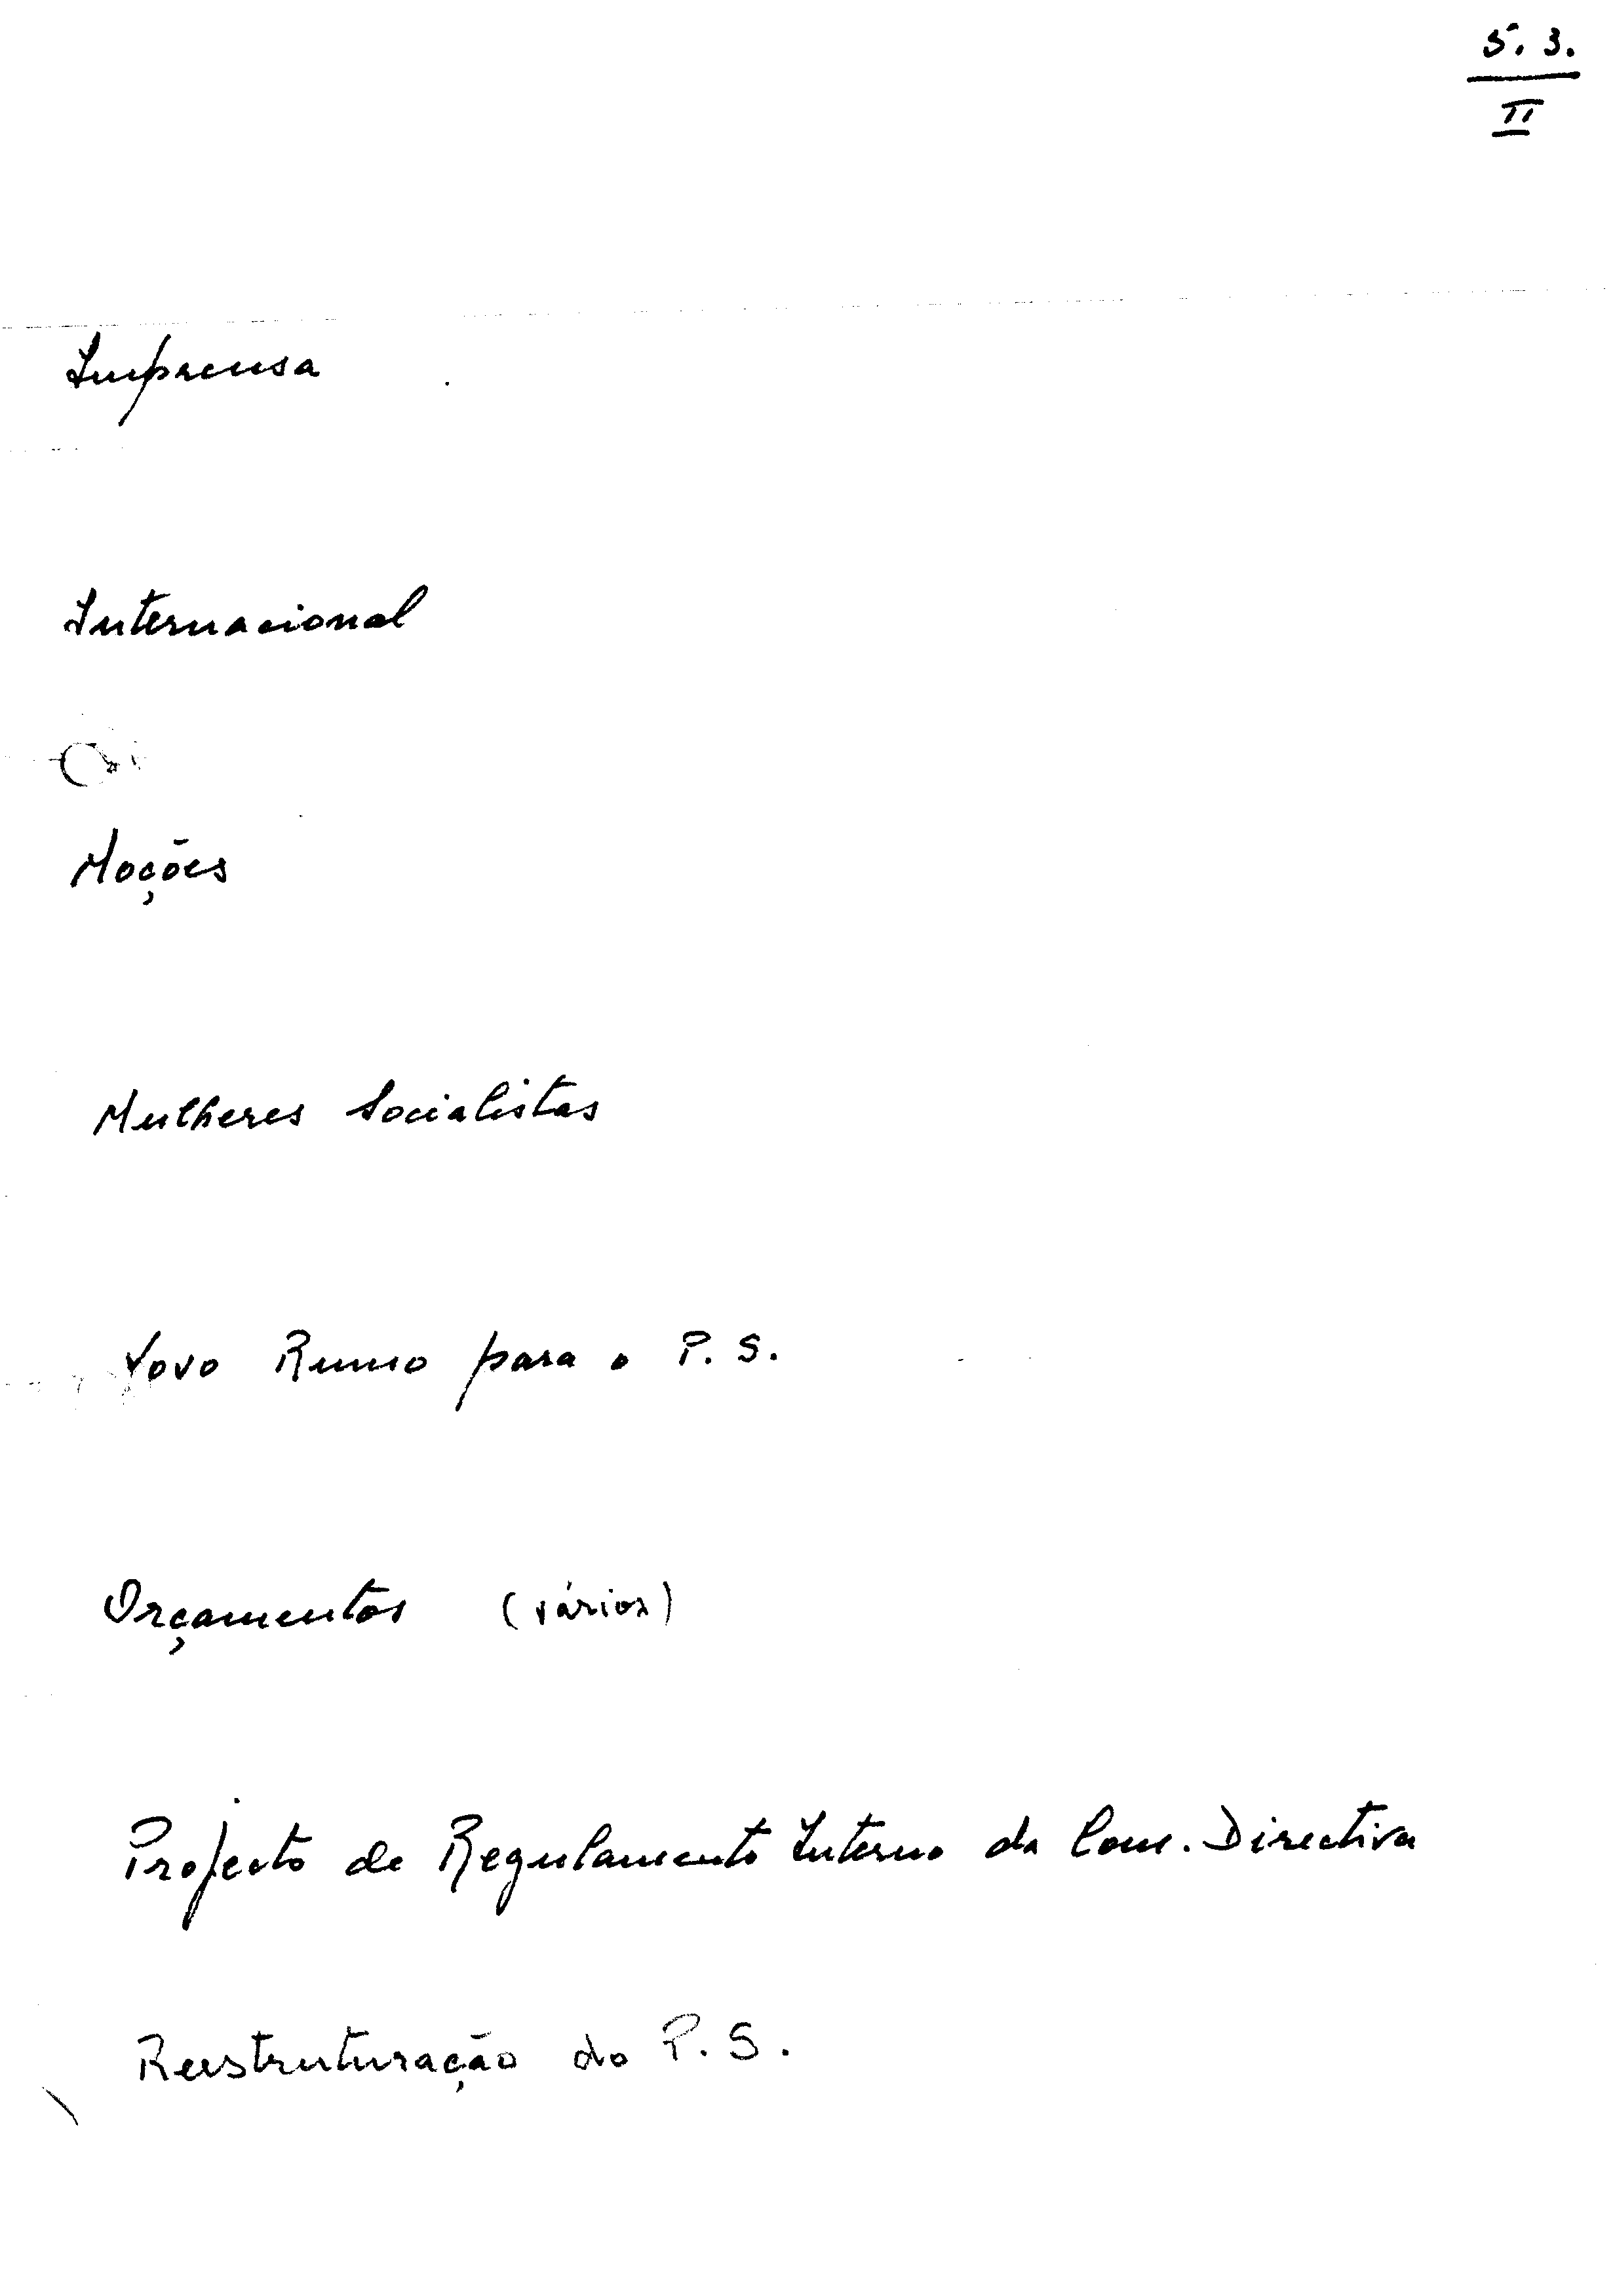 5. 3.
II
Imprensa
Internacional
Moções
Mulheres Socialistas
Novo Rumo para o P. S.
Orçamentos (vários)
Projecto de Regulamento Interno da Com. Directiva
Reestruturação do P. S.